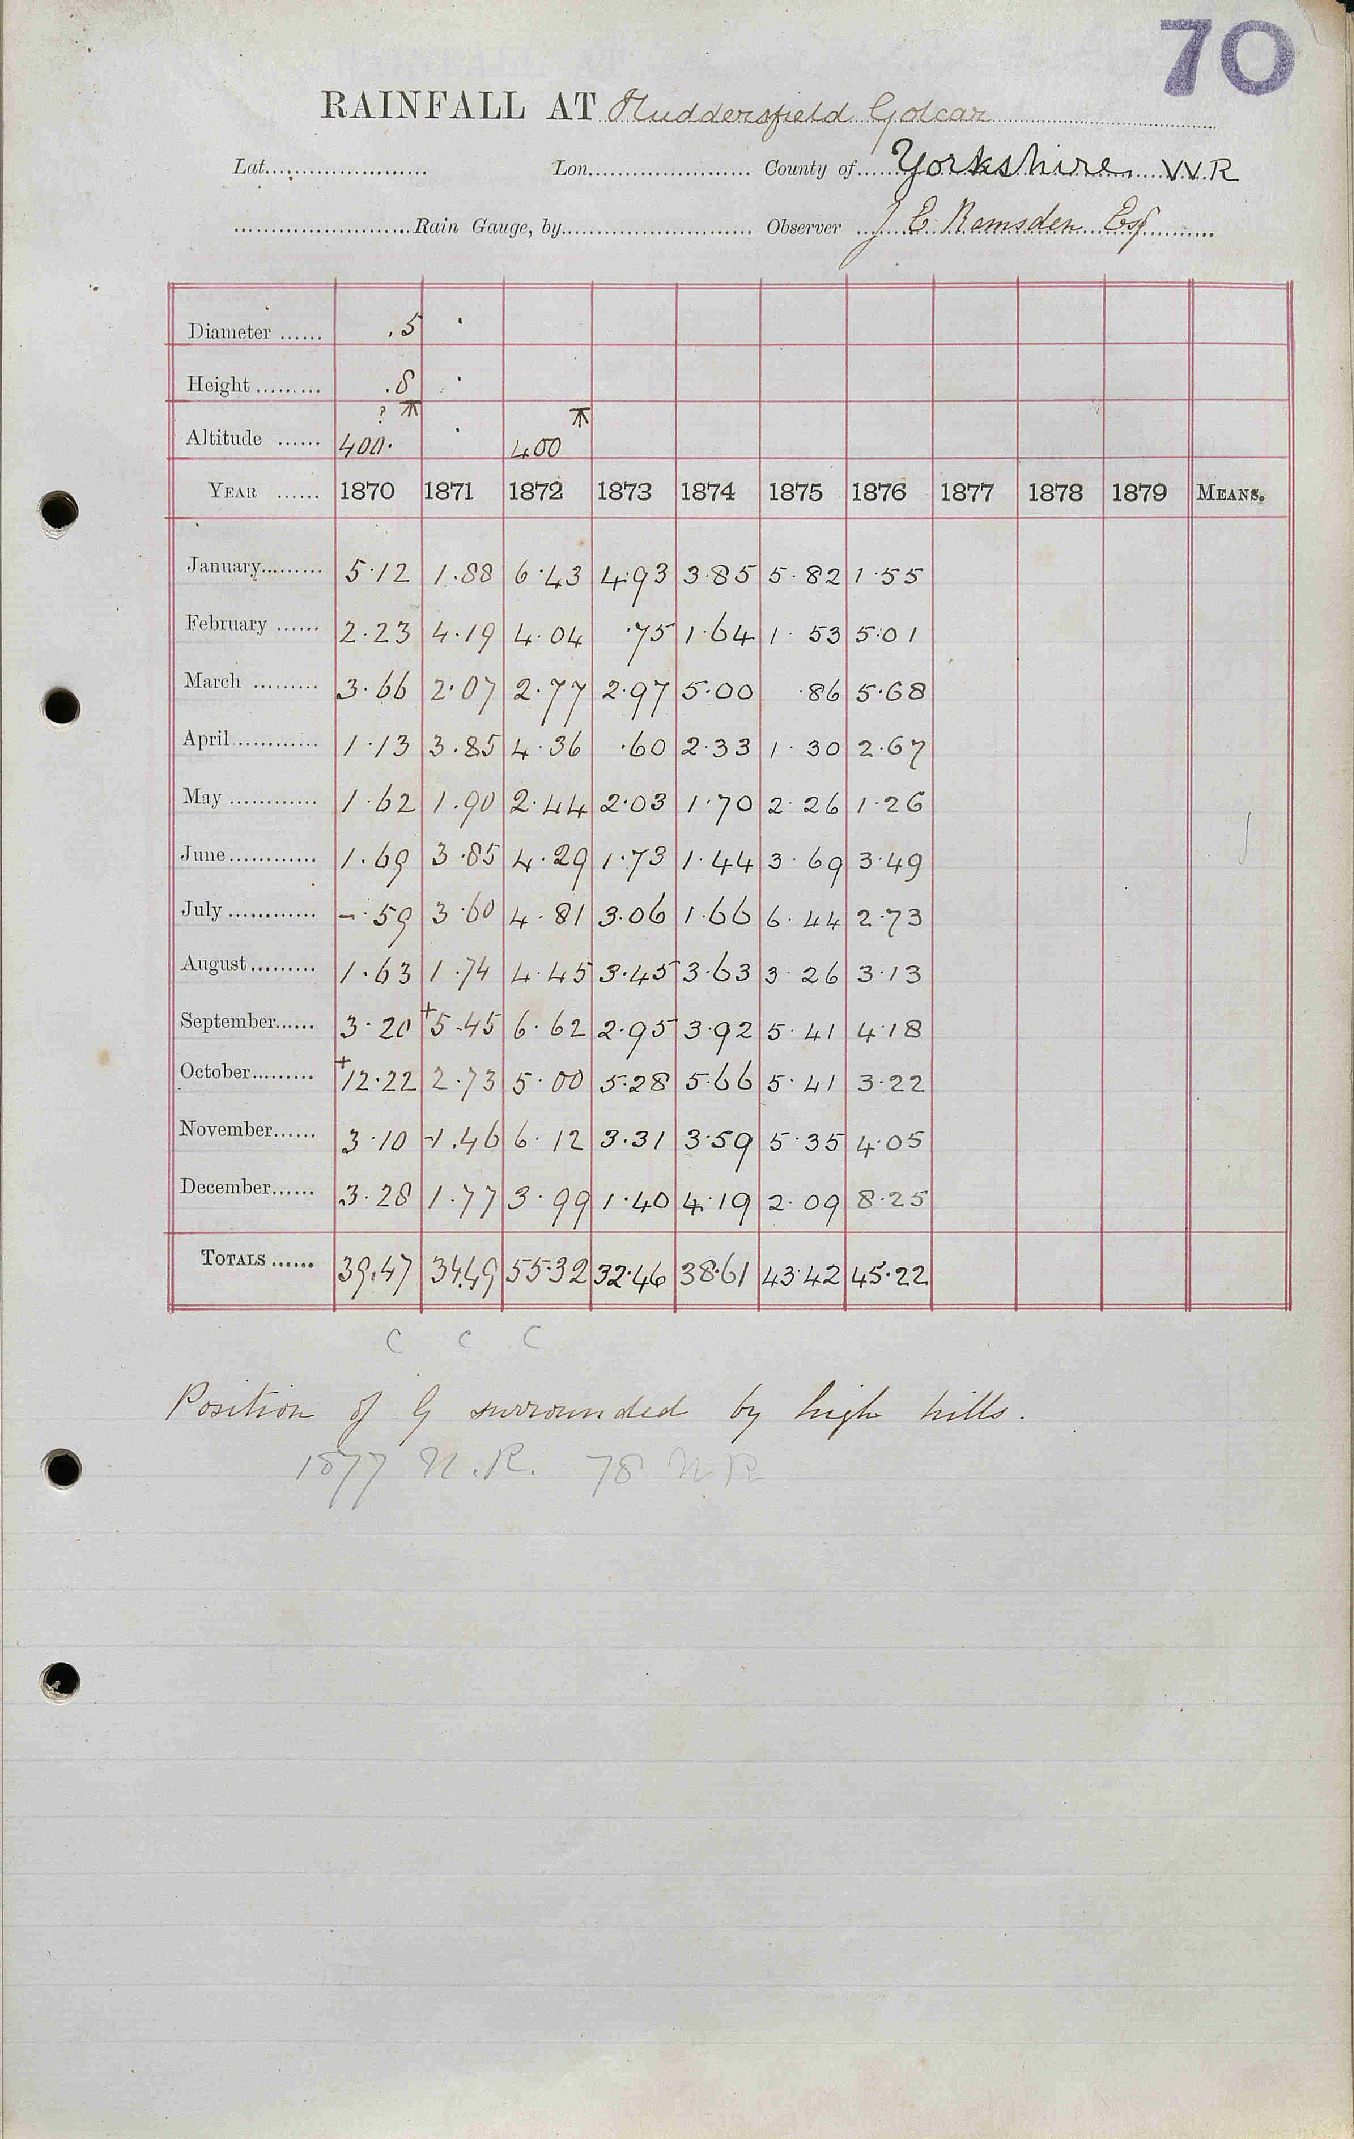 70
RAINFALL AT Huddersfield Golcar
Lat. Lon. County of Yorkshire W R
Rain Gauge, by Observer J E Ramsden Esq
Diameter .5
Height .8
? ⊼ ⊼
Altitude 400. 400
YEAR 1870 1871 1872 1873 1874 1875 1876 1877 1878 1879 MEANS.
January 5.12 1.88 6.43 4.93 3.85 5.82 1.55
February 2.23 4.19 4.04 .75 1.64 1.53 5.01
March 3.66 2.07 2.77 2.97 5.00 .86 5.68
April 1.13 3.85 4.36 .60 2.33 1.30 2.67
May 1.62 1.90 2.44 2.03 1.70 2.26 1.26
June 1.69 3.85 4.29 1.73 1.44 3.69 3.49
July -.59 3.60 4.81 3.06 1.66 6.44 2.73
August 1.63 1.74 4.45 3.45 3.63 3.26 3.13
September 3.20 +5.45 6.62 2.95 3.92 5.41 4.18
October +12.22 2.73 5.00 5.28 5.66 5.41 3.22
November 3.10 -1.46 6.12 3.31 3.59 5.35 4.05
December 3.28 1.77 3.99 1.40 4.19 2.09 8.25
TOTALS 39.47 34.49 55.32 32.46 38.61 43.42 45.22
C C C
Position of G surrounded by high hills.
1877 N.R. 78 N.R